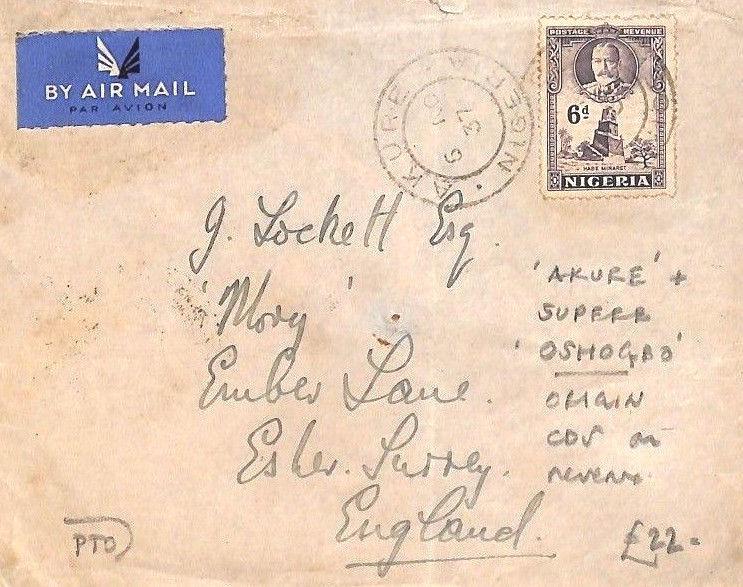 BY AIR MAIL
PAR AVION
AKURE NIGERIA
6
37
POSTAGE REVENUE
6d
HABE MINARET
NIGERIA
J. Lockett Esq.
'Mory'
Ember Lane.
Esher. Surrey.
England.
'AKURE' +
SUPERB
'OSHOGBO'
ORIGIN
CDS on
reverse
PTO
£22-